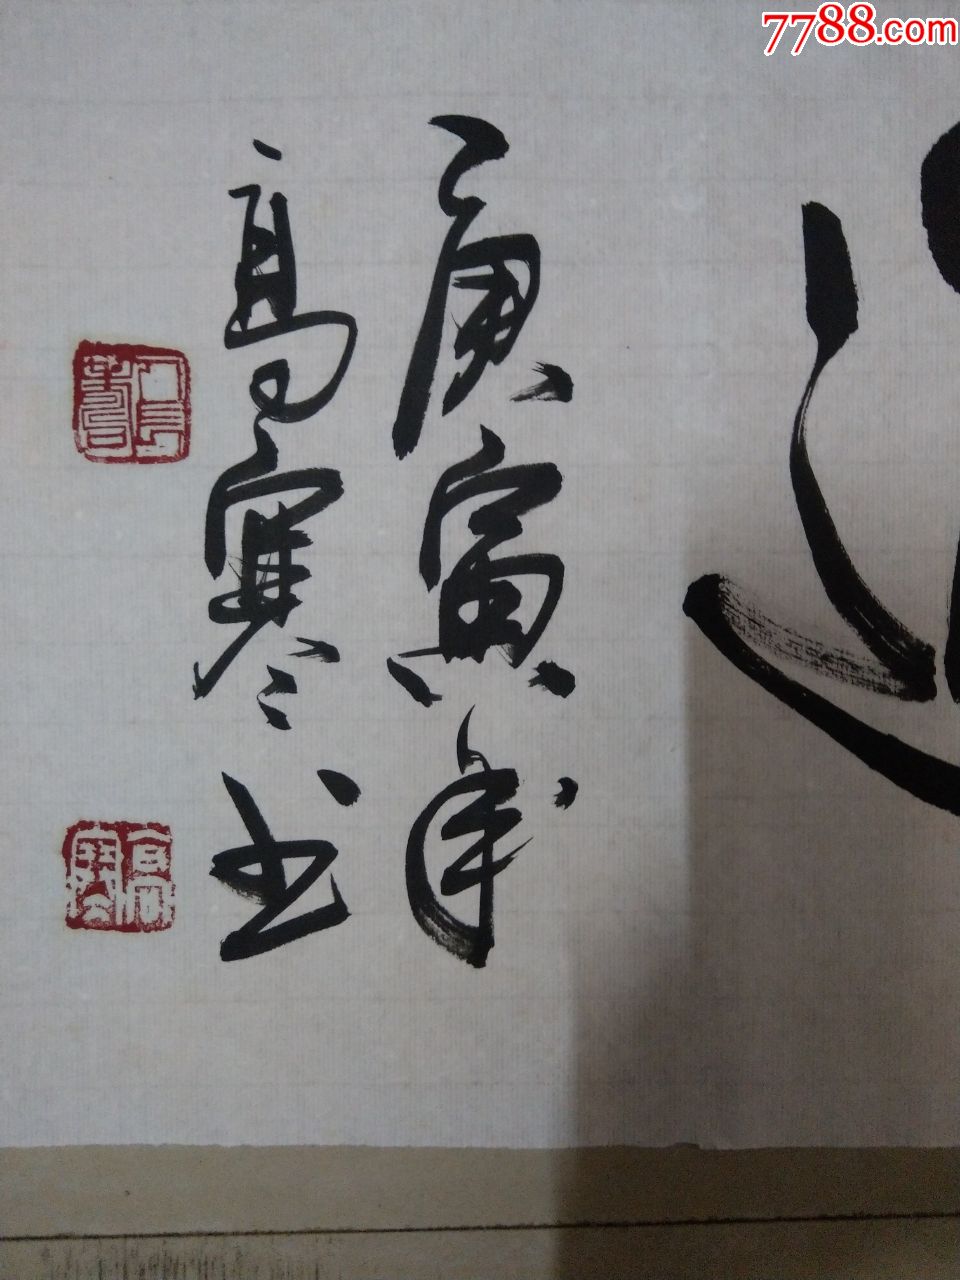 7788.com
庚寅年
高寒书
高寒